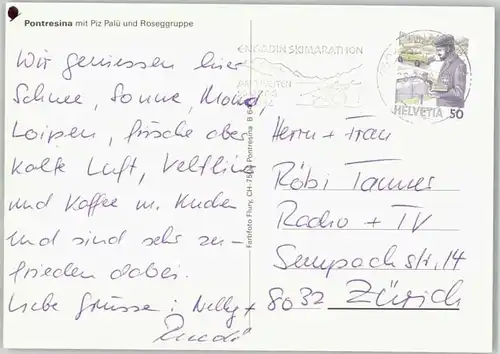 Pontresina mit Piz Palü und Roseggruppe
Wir geniessen hier
Schnee, Sonne, Mond,
Loipen, frische aber
kalte Luft, Veltlin
und Kaffee m. Kuchen
und sind sehr zu-
frieden dabei.
Liebe Grüsse: Nelly +
Ruedi
Farbfoto Flury, CH-7504 Pontresina
ENGADIN SKIMARATHON
HELVETIA 50
Herrn + Frau
Röbi Tanner
Radio + TV
Sempachstr. 14
8032 Zürich